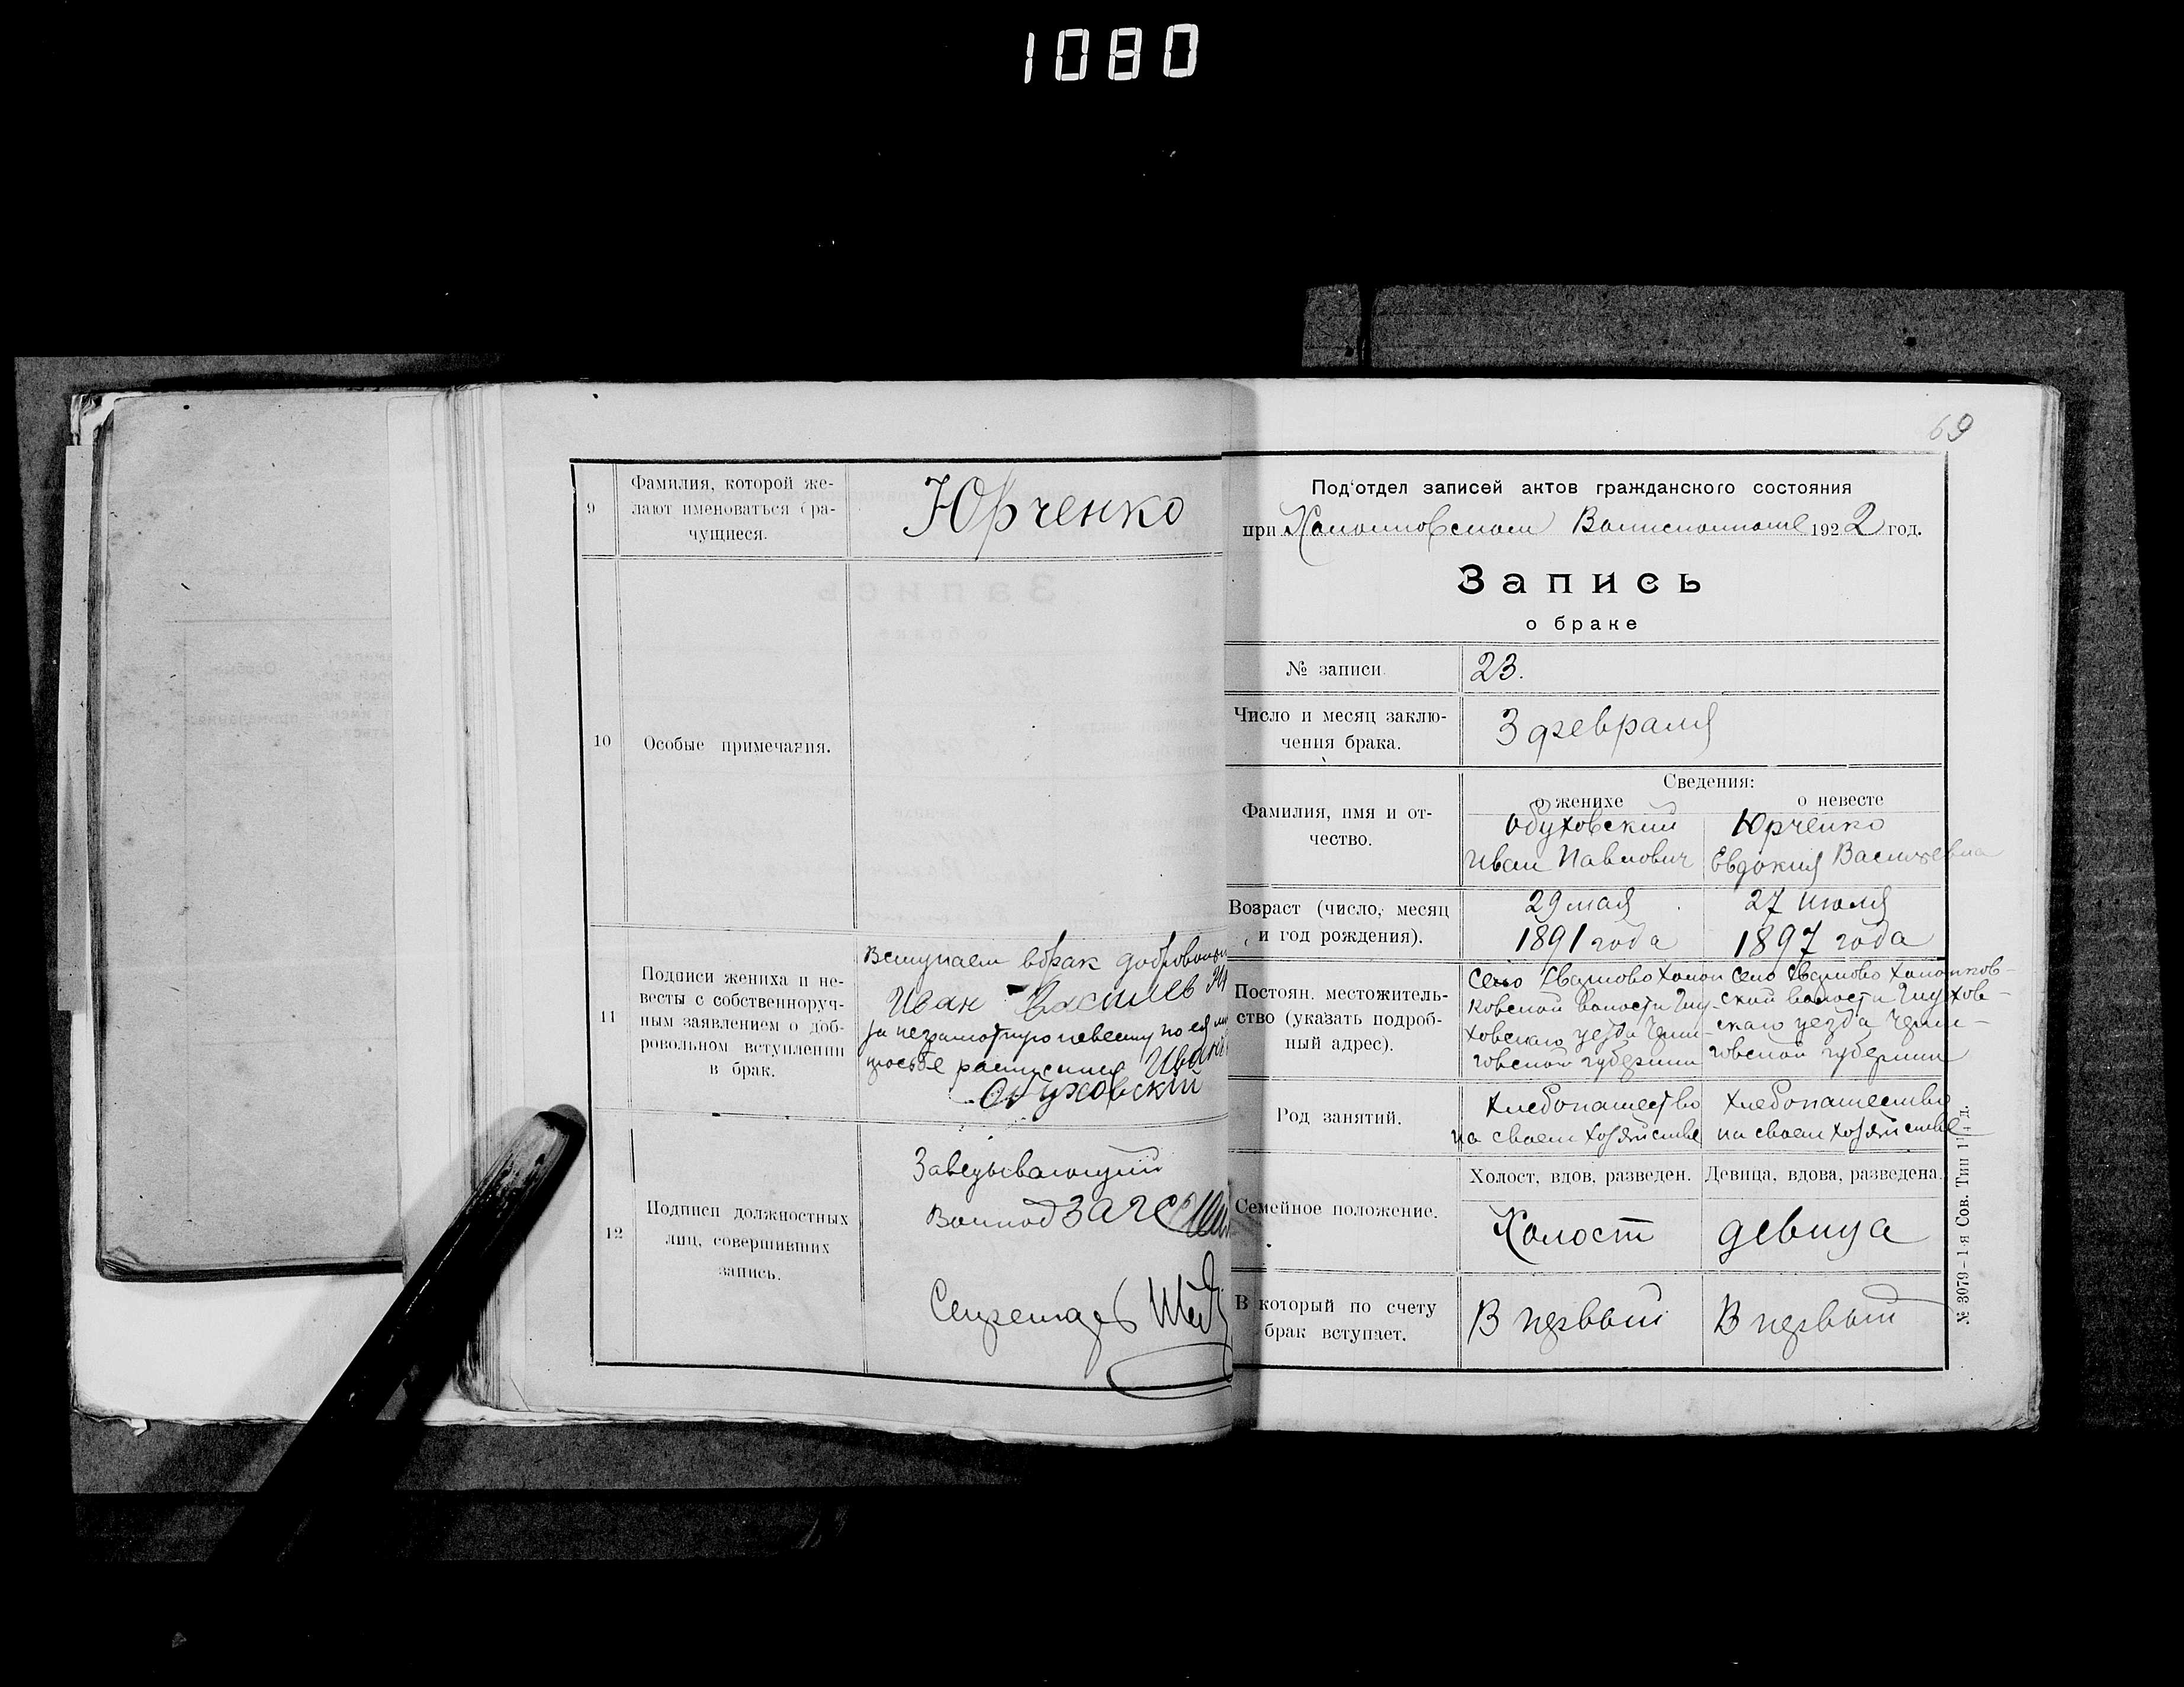 1080
9
Фамилия, которой же-
лают именоваться бра-
чущиеся.
Юрченко
10
Особые примечания.
11
Подписи жениха и не-
весты с собственноруч-
ным заявлением о доб-
ровольном вступлении
в брак.
Вступаем вбрак добровольн
Иван Василев Юр
за неграмотную невесту по ея
просьбе расписался Иван
Обуховский
12
Подписи должностных
лиц, совершивших
запись.
Заведывающий
ЗАГС
Секретарь
69
Под'отдел записей актов гражданского состояния
при Волисполкоме 1922 год.
Запись
о браке
№ записи 23.
Число и месяц заклю-
чения брака.
3 февраля
Сведения:
о женихе о невесте
Фамилия, имя и от-
чество.
Обуховский
Иван Павлович
Юрченко
Евдокия Васильевна
Возраст (число, месяц
и год рождения).
29 мая
1891 года
27 июля
1897 года
Постоян. местожитель-
ство (указать подроб-
ный адрес).
Село
ковской волости Глу-
ховскаго уезда Черни-
говской губернии
Село
ской волости Глухов-
скаго уезда Черни-
говской губернии
Род занятий.
Хлебопашество
на своем хозяйстве
Хлебопашество
на своем хозяйстве
Семейное положение.
Холост, вдов, разведен.
Девица, вдова, разведена.
Холост
девица
В который по счету
брак вступает.
В первый
В первый
№ 3079-1-я Сов. Тип 1/4 д.